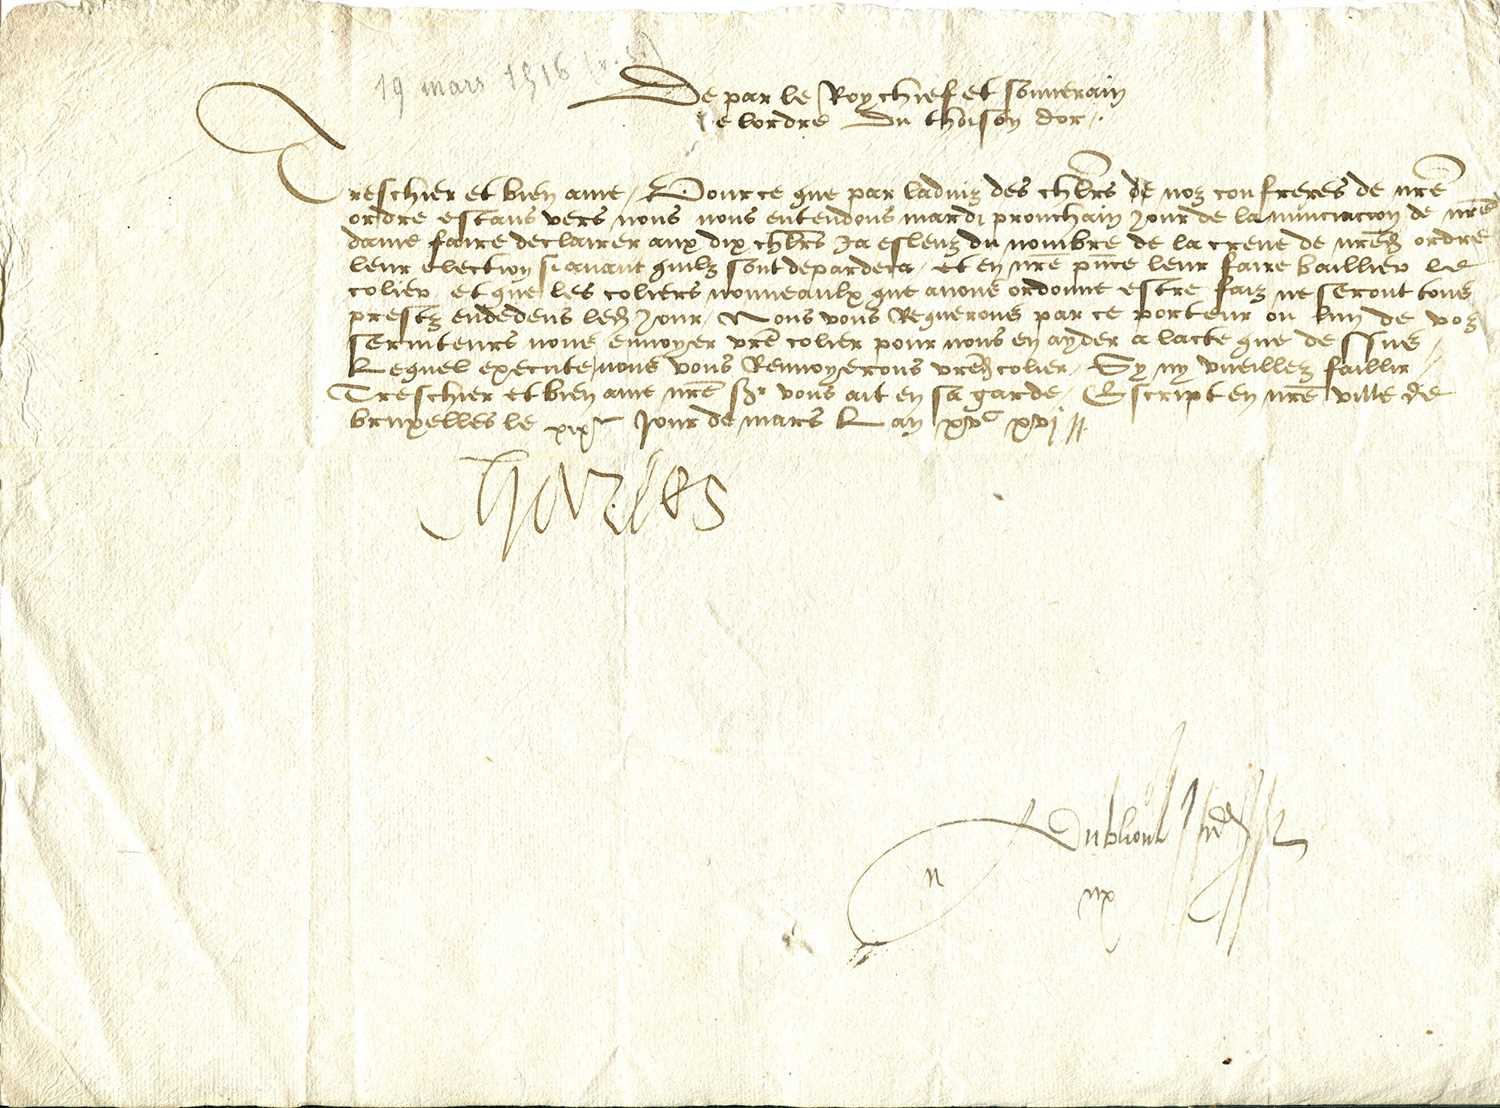 19 mars 1516 (v. st.)
De par le Roy chief et souverain
de lordre du thoison dor.
Treschier et bien ame, Pource que par ladviz des chlrs de noz confreres de nre
ordre estans vers nous nous entendons mardi prouchain Jour de la nunciacion de nre
dame faire declairer aux dix chlrs Ja esleuz du nombre de la creue de nred ordre
leur election si avant quilz sont depardeca, et en nre pnce leur faire baillier le
colier, et que les coliers nouveaulx que avons ordonne estre faiz ne seront tous
prestz endedens led Jour, Nous vous Requerons par ce porteur ou lun de voz
serviteurs nous envoyer vre colier pour nous en ayder a lacte que dessus,
Lequel execute nous vous Renvoyerons vred colier, Sy ny vueillez faillir,
Treschier et bien ame nre sr vous ait en sa garde, Escript en nre ville de
bruxelles le xixe Jour de mars Lan xvc xvj
Charles
Dublioul